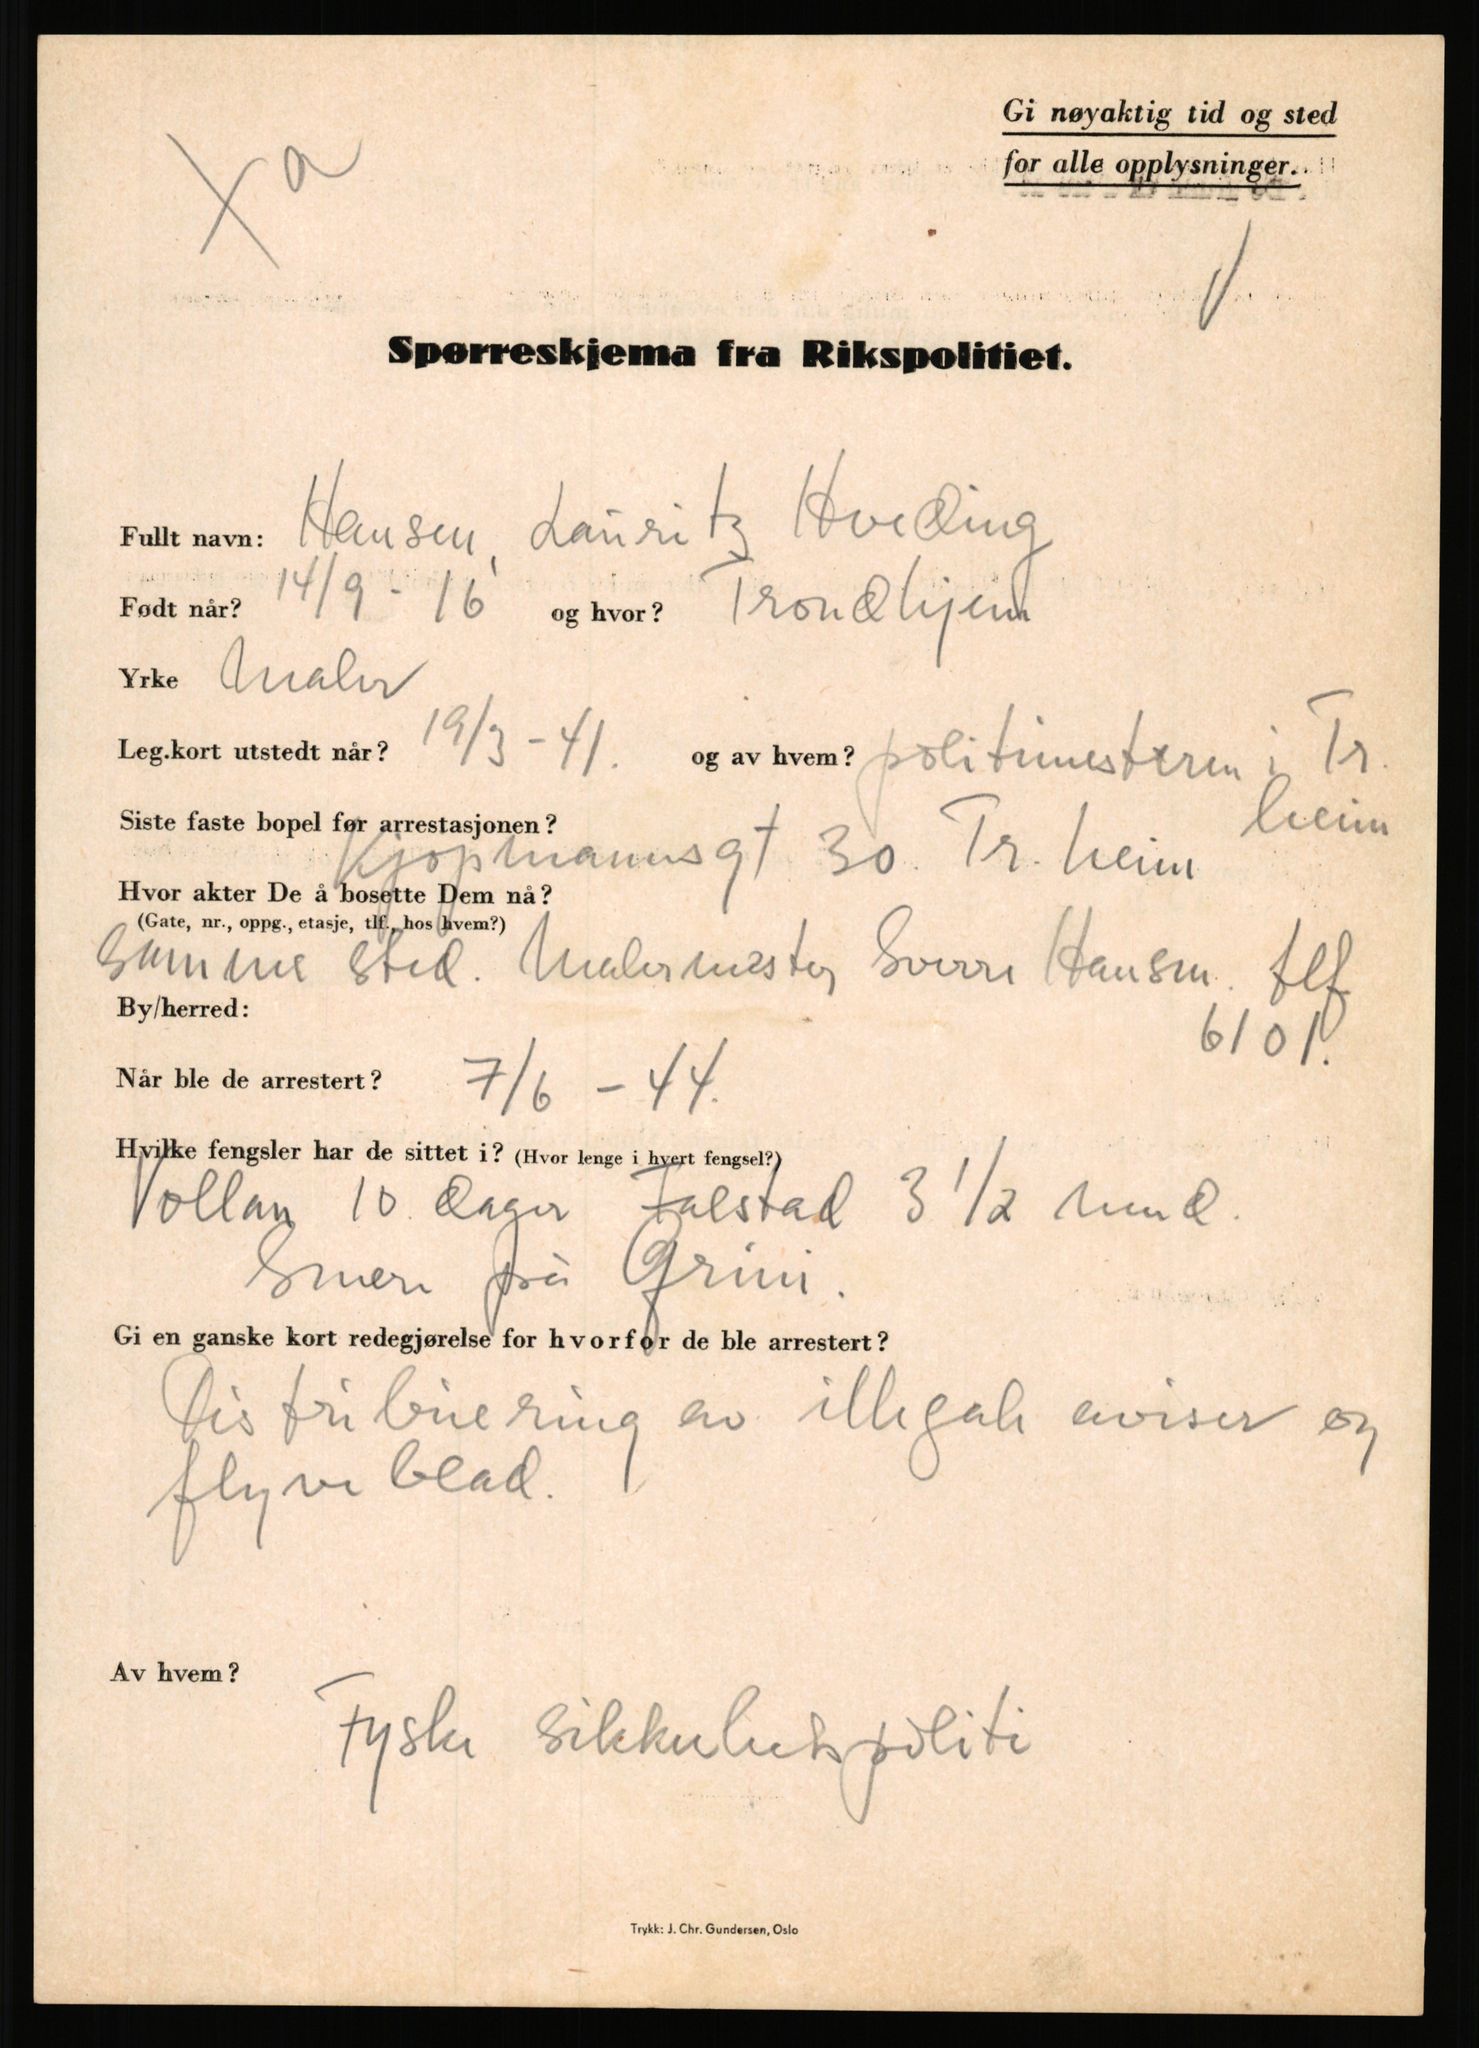 Gi nøyaktig tid og sted
for alle opplysninger.
X a
Spørreskjema fra Rikspolitiet.
Fullt navn: Hansen, Lauritz Hveding
Født når? 14/9 - 16 og hvor? Trondhjem
Yrke Maler
Leg.kort utstedt når? 19/3 - 41. og av hvem? politimesteren i Tr.
heim
Siste faste bopel før arrestasjonen?
Kjøpmannsgt 30. Tr. heim
Hvor akter De å bosette Dem nå?
(Gate, nr., oppg., etasje, tlf., hos hvem?)
Samme sted. Malermester Sverre Hansen. tlf
6101.
By/herred:
Når ble de arrestert? 7/6 - 44.
Hvilke fengsler har de sittet i? (Hvor lenge i hvert fengsel?)
Vollan 10 dager Falstad 3 1/2 mnd.
Snere på Grini.
Gi en ganske kort redegjørelse for hvorfor de ble arrestert?
Distribuering av illegale aviser og
flyveblad.
Av hvem?
Tyske sikkerhetspoliti
Trykk: J. Chr. Gundersen, Oslo